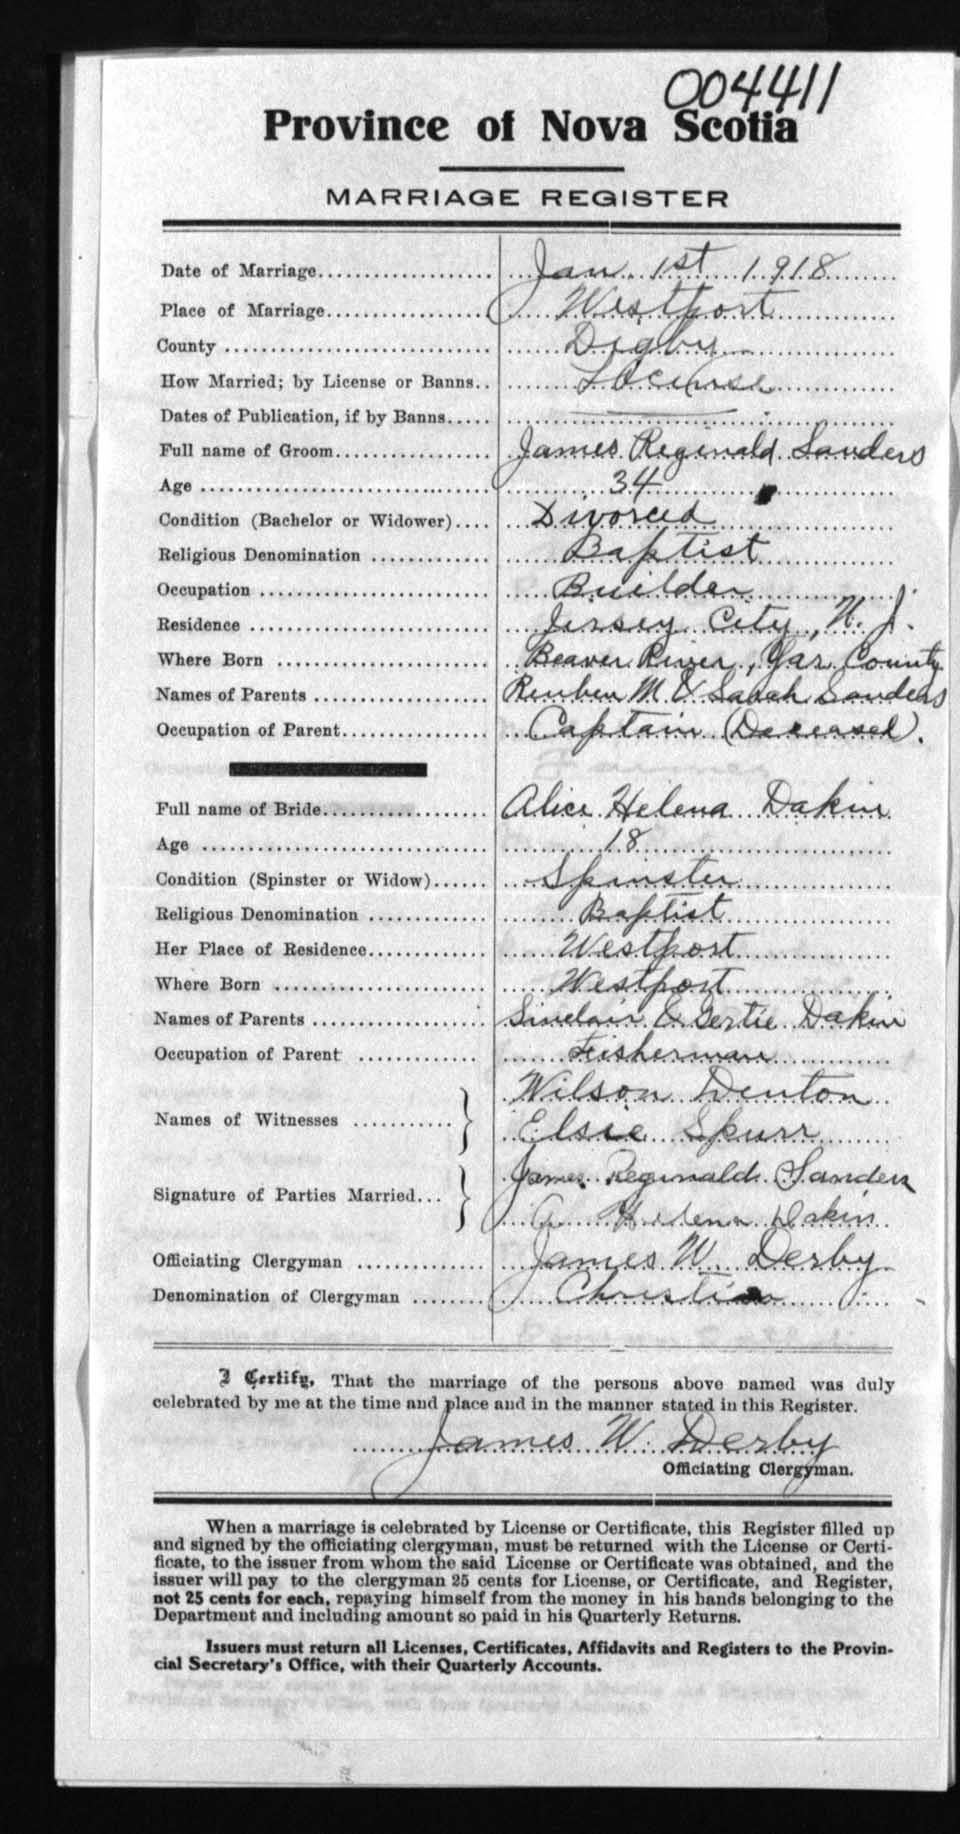 004411
Province of Nova Scotia
MARRIAGE REGISTER
Date of Marriage................... Jan 1st 1918
Place of Marriage................. Westport
County ............................ Digby
How Married; by License or Banns.. License
Dates of Publication, if by Banns.....
Full name of Groom................. James Reginald Sanders
Age ............................... 34
Condition (Bachelor or Widower).... Divorced
Religious Denomination ............ Baptist
Occupation ........................ Builder
Residence ......................... Jersey City, N. J.
Where Born ........................ Beaver River, Yar. County
Names of Parents .................. Reuben M & Sarah Sanders
Occupation of Parent............... Captain (Deceased).
Full name of Bride................. Alice Helena Dakin
Age ............................... 18
Condition (Spinster or Widow)...... Spinster
Religious Denomination ............ Baptist
Her Place of Residence............. Westport
Where Born ........................ Westport
Names of Parents .................. Sinclair & Gertie Dakin
Occupation of Parent .............. Fisherman
Wilson Denton
Names of Witnesses ...........
Elsie Spurr
James Reginald Sanders
Signature of Parties Married...
A Helena Dakin
Officiating Clergyman ............. James W. Derby
Denomination of Clergyman ........ Christian
I Certify, That the marriage of the persons above named was duly
celebrated by me at the time and place and in the manner stated in this Register.
James W. Derby
Officiating Clergyman.
When a marriage is celebrated by License or Certificate, this Register filled up
and signed by the officiating clergyman, must be returned with the License or Certi-
ficate, to the issuer from whom the said License or Certificate was obtained, and the
issuer will pay to the clergyman 25 cents for License, or Certificate, and Register,
not 25 cents for each, repaying himself from the money in his hands belonging to the
Department and including amount so paid in his Quarterly Returns.
Issuers must return all Licenses, Certificates, Affidavits and Registers to the Provin-
cial Secretary's Office, with their Quarterly Accounts.